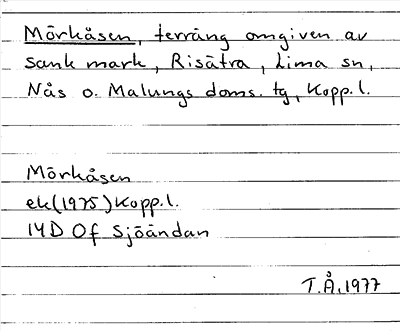 Mörkåsen, terräng omgiven av
sank mark, Risätra, Lima sn,
Nås o. Malungs doms. tg, Kopp. l.
Mörkåsen
ek (1975) Kopp. l.
14D Of Sjöändan
T.Å. 1977